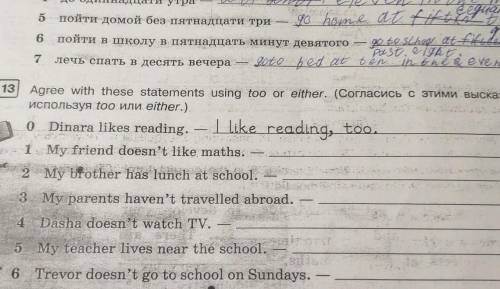 5 пойти домой без пятнадцати три — go home at
6 пойти в школу в пятнадцать минут девятого — go to school at
past eight.
7 лечь спать в десять вечера — go to bed at ten in the even
13 Agree with these statements using too or either. (Согласись с этими выска
используя too или either.)
0 Dinara likes reading. — I like reading, too.
1 My friend doesn't like maths. —
2 My brother has lunch at school. —
3 My parents haven't travelled abroad. —
4 Dasha doesn't watch TV. —
5 My teacher lives near the school. —
6 Trevor doesn't go to school on Sundays. —